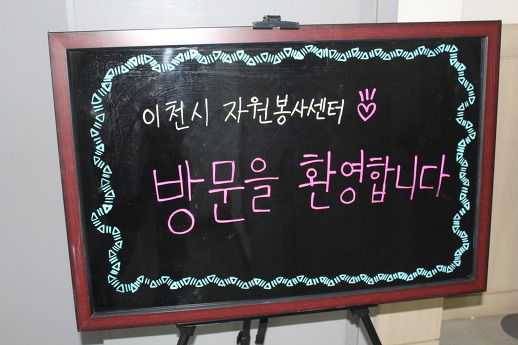 이천시 자원봉사센터
방문을 환영합니다